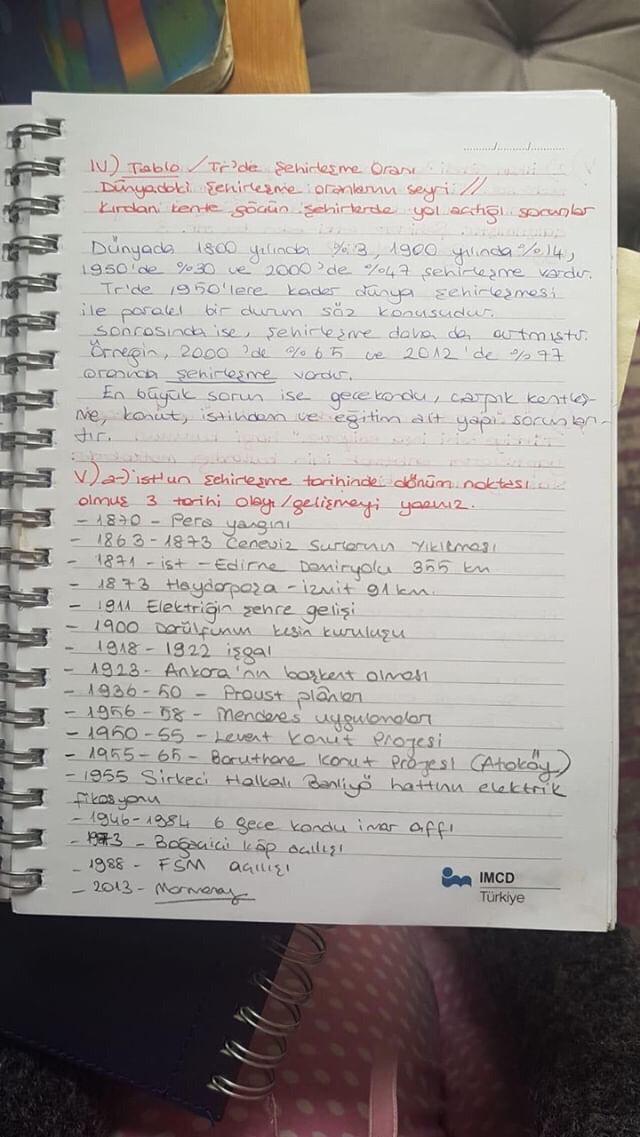 ....../....../......
IV) Tablo / Tr'de Şehirleşme Oranı
Dünyadaki şehirleşme oranlarının seyri //
Kırdan kente göçün şehirlerde yol açtığı sorunlar
Dünyada 1800 yılında %3, 1900 yılında %14,
1950'de %30 ve 2000'de %47 şehirleşme vardır.
Tr'de 1950'lere kadar dünya şehirleşmesi
ile paralel bir durum söz konusudur.
Sonrasında ise, şehirleşme daha da artmıştır.
Örneğin, 2000'de %65 ve 2012'de %77
oranında şehirleşme vardır.
En büyük sorun ise gecekondu, çarpık kentleş-
me, konut, istihdam ve eğitim alt yapı sorunları-
dır.
V) a-) ist'un şehirleşme tarihindeki dönüm noktası
olmuş 3 tarihi olayı/gelişmeyi yazınız.
- 1870 - Pera yangını
- 1863-1873 Ceneviz Surlarının Yıkılması
- 1871 - ist - Edirne Demiryolu 355 km
- 1873 Haydarpaşa - izmit 91 km.
- 1911 Elektriğin şehre gelişi
- 1900 Darülfünun kesin kuruluşu
- 1918 - 1922 işgal
- 1923 - Ankara'nın başkent olması
- 1936-50 - Proust planları
- 1956-58 - Menderes uygulamaları
- 1950-55 - Levent Konut Projesi
- 1955-65 - Baruthane Konut Projesi (Ataköy)
- 1955 Sirkeci Halkalı Banliyö hattının elektrik
fikasyonu
- 1946-1984 6 gece kondu imar affı
- 1973 - Boğaziçi Köp açılışı
- 1988 - FSM açılışı
- 2013 - Marmaray
IMCD
Türkiye